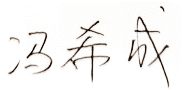 冯希成